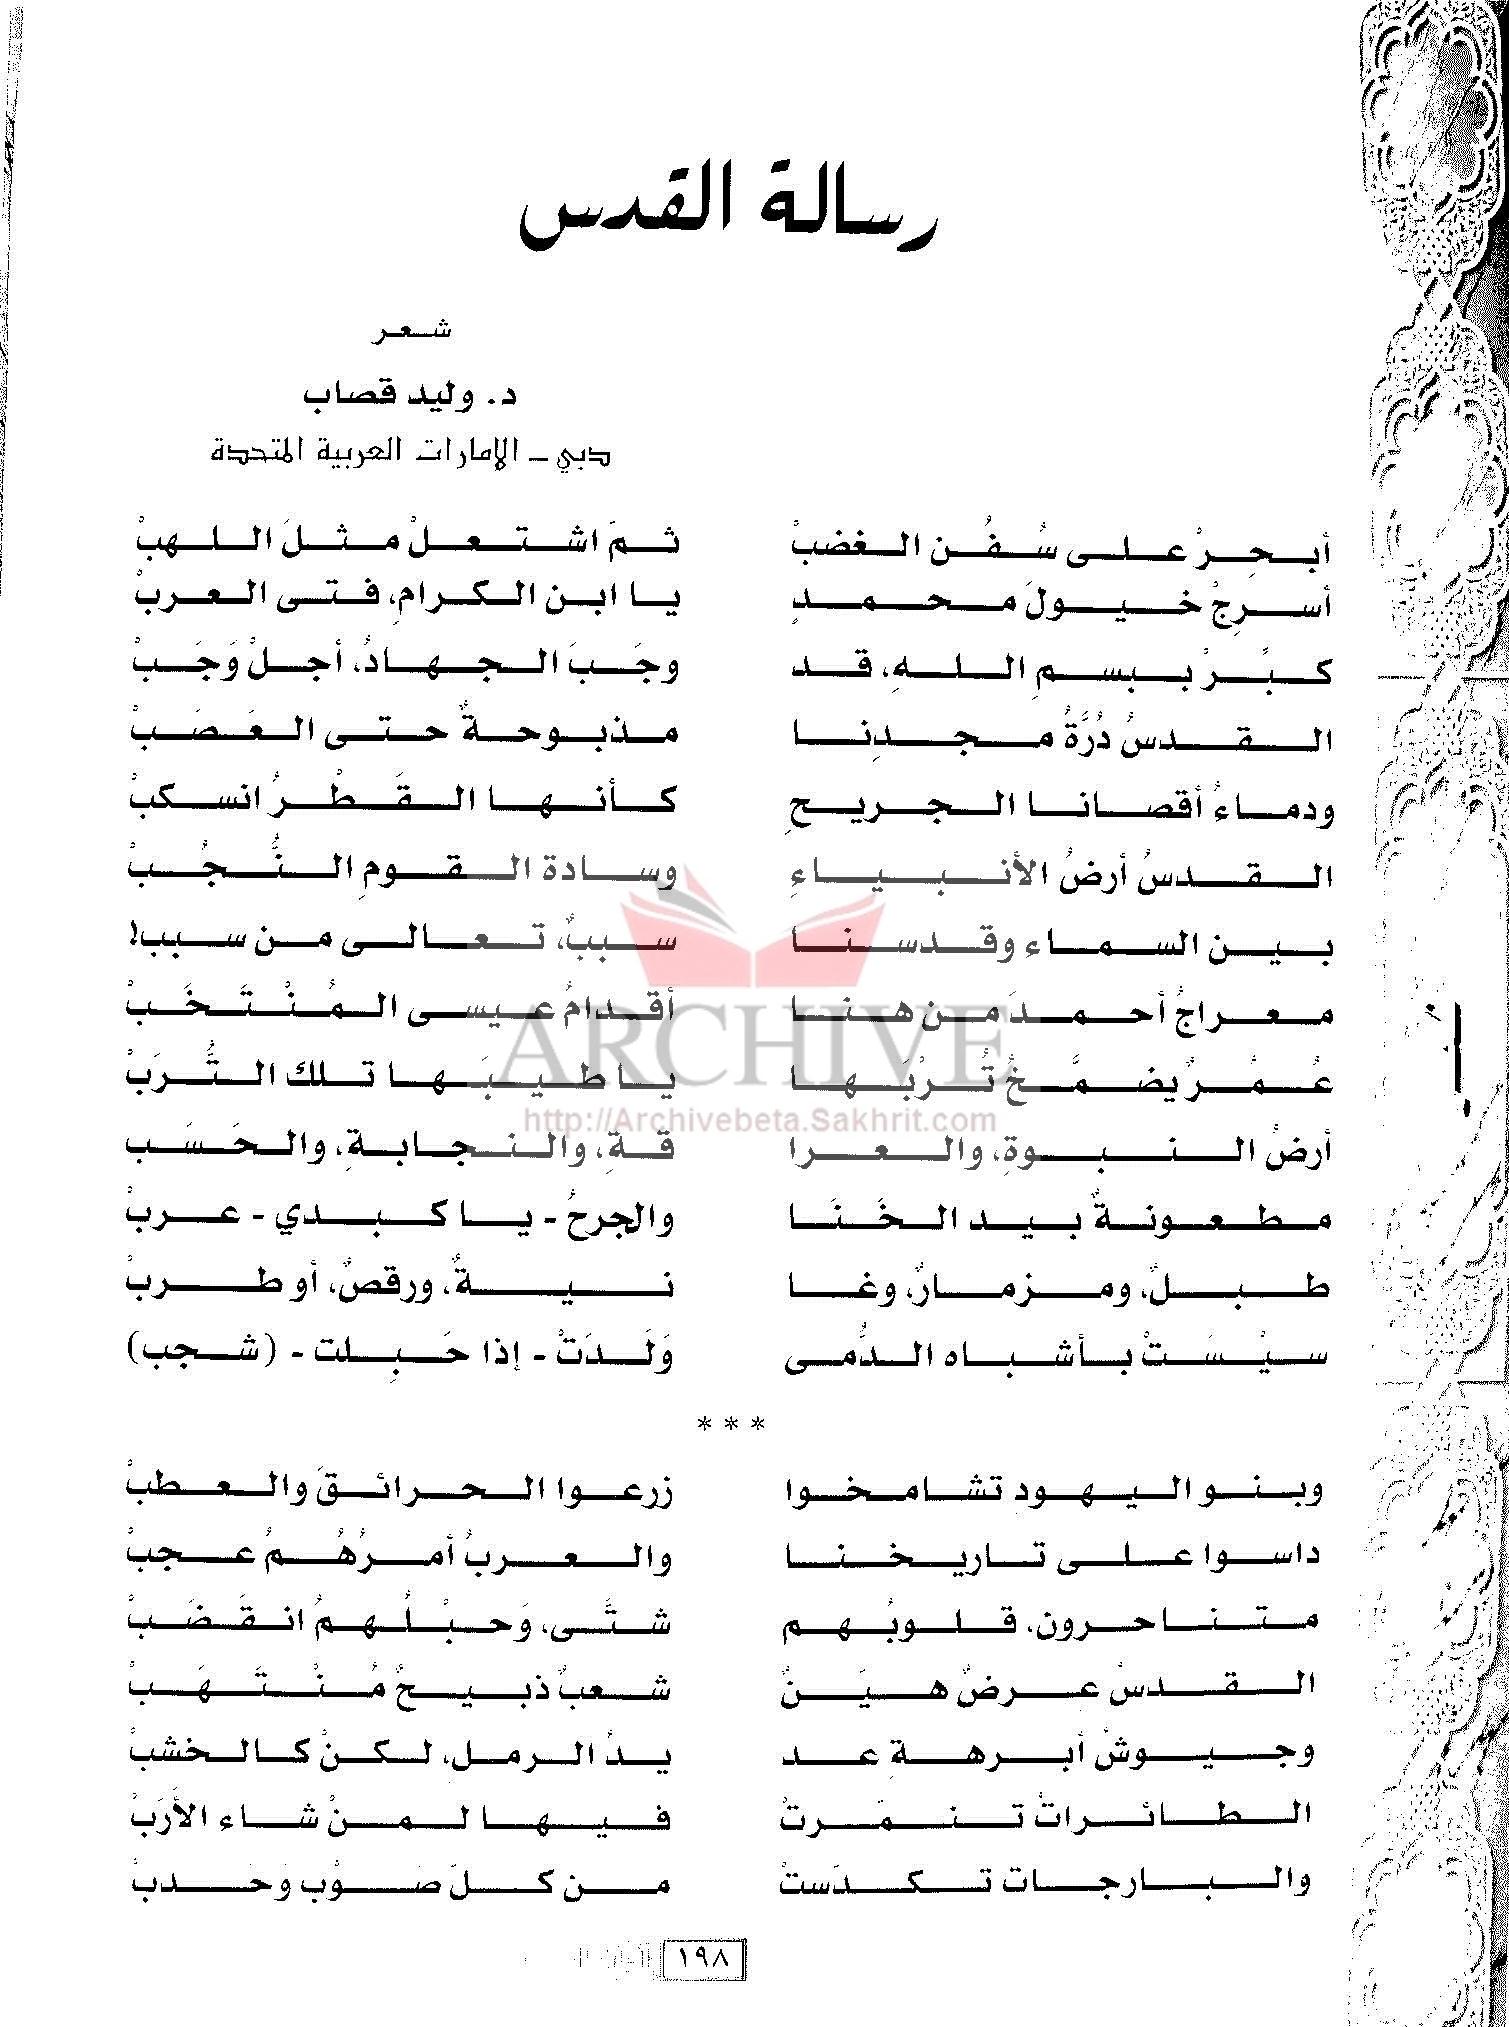 رسالة القدس
شعر
د. وليد قصاب
دبي - الإمارات العربية المتحدة
أبحِرْ على سُفُن الغضبْ ثمّ اشتعلْ مثلَ اللهبْ
أسرِجْ خيولَ محمدٍ يا ابن الكرامِ، فتى العربْ
كبّرْ ببسمِ اللهِ، قد وجَبَ الجهادُ، أجلْ وَجَبْ
القدسُ دُرَّةُ مجدِنا مذبوحةٌ حتى العَصَبْ
ودماءُ أقصانا الجريحِ كأنها القَطْرُ انسكبْ
القدسُ أرضُ الأنبياءِ وسادة القومِ النُّجُبْ
بين السماء وقدسنا سببٌ، تعالى من سبب!
معراجُ أحمدَ من هنا أقدامُ عيسى المُنْتَخَبْ
عُمْرٌ يضمَّخُ تُرْبَها يا طيبَها تلك التُّرَبْ
أرضُ النبوةِ، والعرا قةِ، والنجابةِ، والحَسَبْ
مطعونةٌ بيد الخَنَا والجرحُ - يا كبدي - عربْ
طبلٌ، ومزمارٌ، وغا نيةٌ، ورقصٌ، أو طربْ
سيْسَتْ بأشباه الدُّمى وَلَدَتْ - إذا حَبِلت - (شجب)
***
وبنو اليهود تشامخوا زرعوا الحرائقَ والعطبْ
داسوا على تاريخنا والعربُ أمرُهُمُ عجبْ
متناحرون، قلوبُهم شتَّى، وَحبْلُهمُ انقَضَبْ
القدسُ عرضٌ هيّنٌ شعبٌ ذبيحٌ مُنْتَهَبْ
وجيوشُ أبرهةٍ عد يدُ الرمل، لكنْ كالخشبْ
الطائراتُ تنمّرتْ فيها لمنْ شاء الأرَبْ
والبارجات تكدّستْ من كلّ صَوْب وحدبْ
١٩٨
http://Archivebeta.Sakhrit.com
ARCHIVE